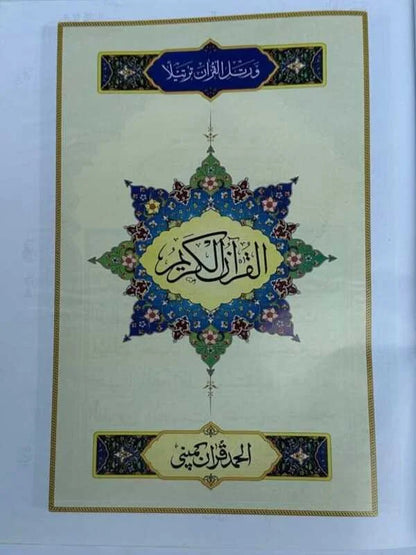 وَرَتِّلِ الْقُرْآنَ تَرْتِيلًا
القرآن الكريم
الحمد قرآن کمپنی